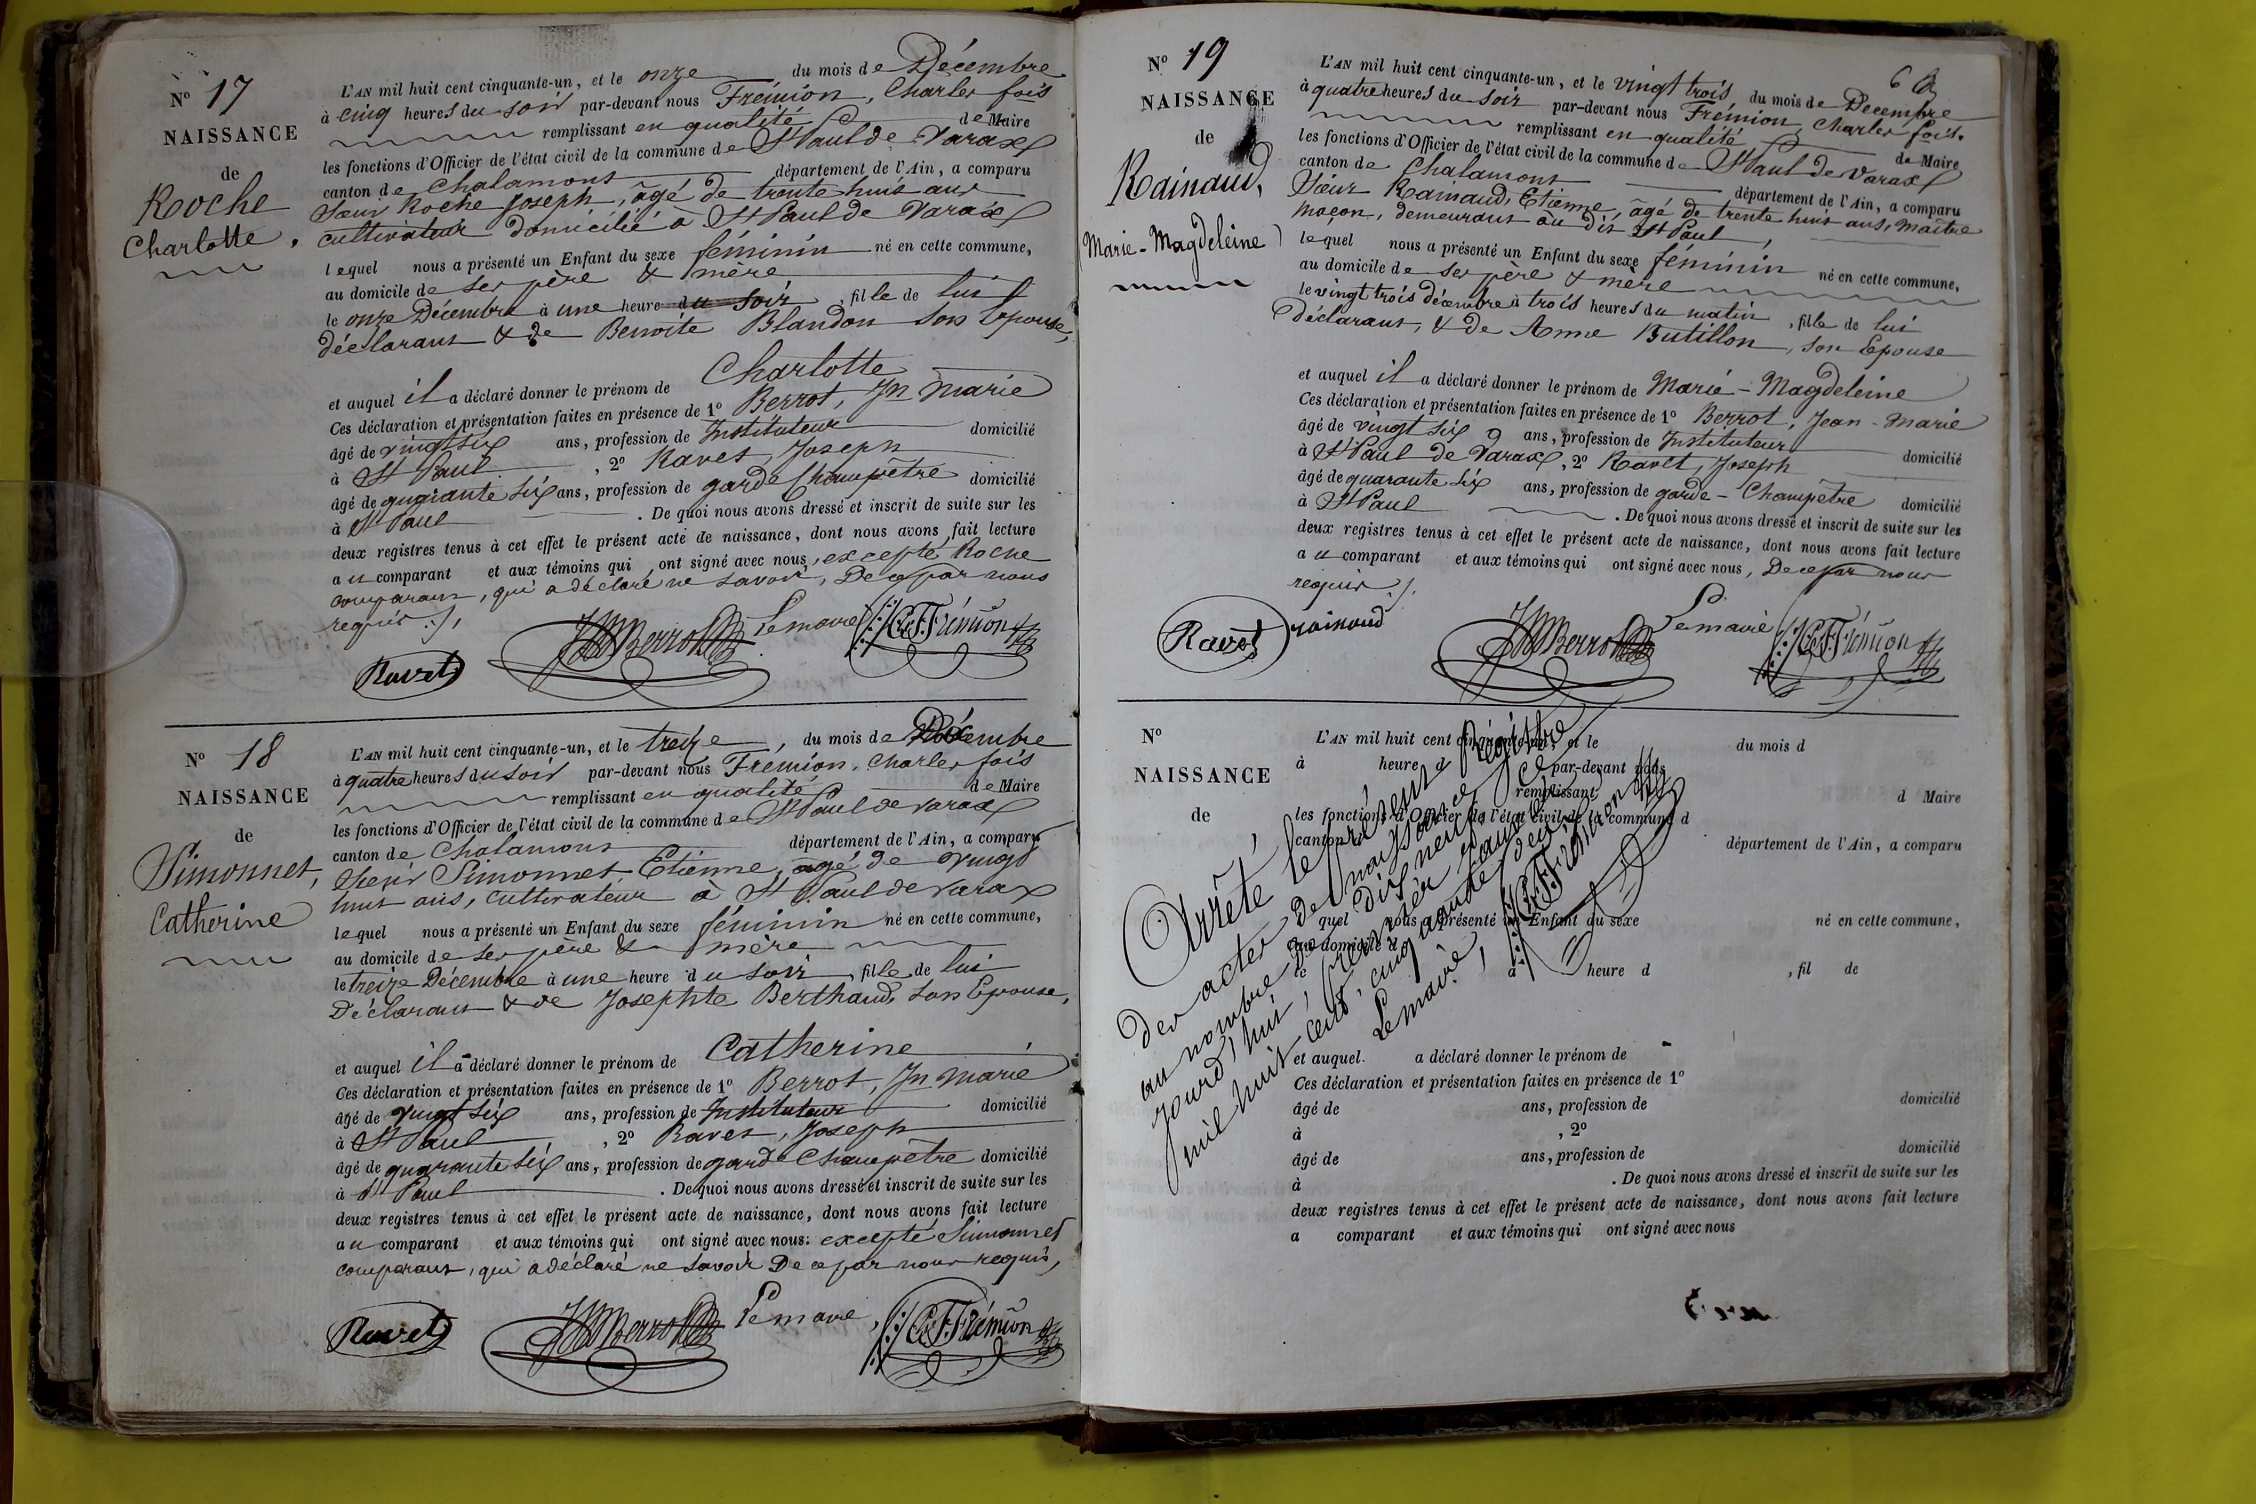 N° 17
NAISSANCE
de
Roche
Charlotte.
L'AN mil huit cent cinquante-un, et le onze du mois de Décembre
à cinq heures du soir par-devant nous Frémion, Charles fois
remplissant en qualité de Maire
les fonctions d'Officier de l'état civil de la commune de St Paul de Varax
canton de Chalamont département de l'Ain, a comparu
Sieur Roche Joseph, âgé de trente huit ans
cultivateur domicilié à St Paul de Varax
lequel nous a présenté un Enfant du sexe féminin né en cette commune,
au domicile de ses père & mère
le onze Décembre à une heure du soir, fille de lui
déclarant & de Benoite Blandon son Epouse,
et auquel il a déclaré donner le prénom de Charlotte
Ces déclaration et présentation faites en présence de 1° Berrot, Jn Marie
âgé de vingt six ans, profession de Instituteur domicilié
à St Paul, 2° Ravet, Joseph
âgé de quarante six ans, profession de garde Champêtre domicilié
à St Paul. De quoi nous avons dressé et inscrit de suite sur les
deux registres tenus à cet effet le présent acte de naissance, dont nous avons fait lecture
au comparant et aux témoins qui ont signé avec nous, excepté Roche
comparant, qui a déclaré ne savoir, De ce par nous
requis ./.
Ravet JMBerrot Le maire Ch. F. Frémion
N° 18
NAISSANCE
de
Simonnet,
Catherine
L'AN mil huit cent cinquante-un, et le treize, du mois de Décembre
à quatre heures du soir par-devant nous Frémion, Charles fois
remplissant en qualité de Maire
les fonctions d'Officier de l'état civil de la commune de St Paul de Varax
canton de Chalamont département de l'Ain, a comparu
Sieur Simonnet Etienne, âgé de vingt
huit ans, cultivateur à St Paul de Varax
lequel nous a présenté un Enfant du sexe féminin né en cette commune,
au domicile de ses père & mère
le treize Décembre à une heure du soir, fille de lui
Déclarant & de Josephte Berthaud, son Epouse,
et auquel il a déclaré donner le prénom de Catherine
Ces déclaration et présentation faites en présence de 1° Berrot, Jn Marie
âgé de vingt six ans, profession de Instituteur domicilié
à St Paul, 2° Ravet, Joseph
âgé de quarante six ans, profession de garde Champêtre domicilié
à St Paul. De quoi nous avons dressé et inscrit de suite sur les
deux registres tenus à cet effet le présent acte de naissance, dont nous avons fait lecture
au comparant et aux témoins qui ont signé avec nous: excepté Simonnet
comparant, qui a déclaré ne savoir De ce par nous requis,
Ravet JMBerrot Le maire, Ch. F. Frémion
6
N° 19
NAISSANCE
de
Rainaud,
Marie-Magdeleine
L'AN mil huit cent cinquante-un, et le vingt trois du mois de Decembre
à quatre heures du soir par-devant nous Frémion, Charles fois.
remplissant en qualité de Maire
les fonctions d'Officier de l'état civil de la commune de St Paul de Varax
canton de Chalamont département de l'Ain, a comparu
Sieur Rainaud, Etienne, âgé de trente huit ans, Maître
maçon, demeurant au dit St Paul,
lequel nous a présenté un Enfant du sexe féminin né en cette commune,
au domicile de ses père & mère
le vingt trois décembre à trois heures du matin, fille de lui
Déclarant, & de Anne Butillon, son Epouse
et auquel il a déclaré donner le prénom de Marie-Magdeleine
Ces déclaration et présentation faites en présence de 1° Berrot, Jean-Marie
âgé de vingt six ans, profession de Instituteur domicilié
à St Paul de Varax, 2° Ravet, Joseph
âgé de quarante six ans, profession de garde-Champêtre domicilié
à St Paul. De quoi nous avons dressé et inscrit de suite sur les
deux registres tenus à cet effet le présent acte de naissance, dont nous avons fait lecture
au comparant et aux témoins qui ont signé avec nous, De ce par nous
requis ./.
Ravet rainaud JMBerrot Le maire Ch. F. Frémion
N°
NAISSANCE
de
L'AN mil huit cent cinquante-un, et le du mois d
à heure d par-devant nous
remplissant d Maire
les fonctions d'Officier de l'état civil de la commune d
canton d département de l'Ain, a comparu
quel nous a présenté un Enfant du sexe né en cette commune,
au domicile d
le à heure d, fil de
et auquel a déclaré donner le prénom de
Ces déclaration et présentation faites en présence de 1°
âgé de ans, profession de domicilié
à, 2°
âgé de ans, profession de domicilié
à. De quoi nous avons dressé et inscrit de suite sur les
deux registres tenus à cet effet le présent acte de naissance, dont nous avons fait lecture
a comparant et aux témoins qui ont signé avec nous
Arrêté le présent Régistre
des actes de naissance
au nombre de dix neuf, ce
jourd'hui, premier janvier
mil huit cent cinquante deux
Le maire, Ch. F. Frémion